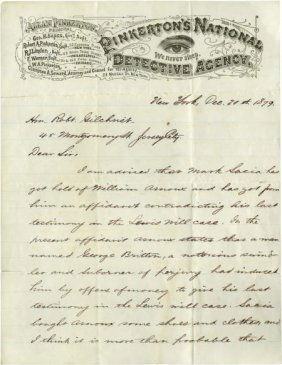 ALLAN PINKERTON
PRINCIPAL.
Geo. H. Bangs, Gen'l Supt.
Robert A. Pinkerton, Supt.
R.J. Linden, Supt.
F. Warner, Supt.
W.A. Pinkerton,
PINKERTON'S NATIONAL
We never sleep.
DETECTIVE AGENCY.
New York, Dec. 20th 1879.
Hon. Robt. Gilchrist.
45 Montgomery St. Jersey City
Dear Sir.
I am advised that Mark Sacia has
got hold of William Arnoux and has got from
him an affidavit contradicting his last
testimony in the Lewis Will case. In the
present affidavit Arnoux states that a man
named George Britton, a notorious swind-
ler and suborner of perjury had induced
him by offers of money to give his last
testimony in the Lewis will case. Sacia
bought Arnoux some shoes and clothes, and
I think it is more than probable that